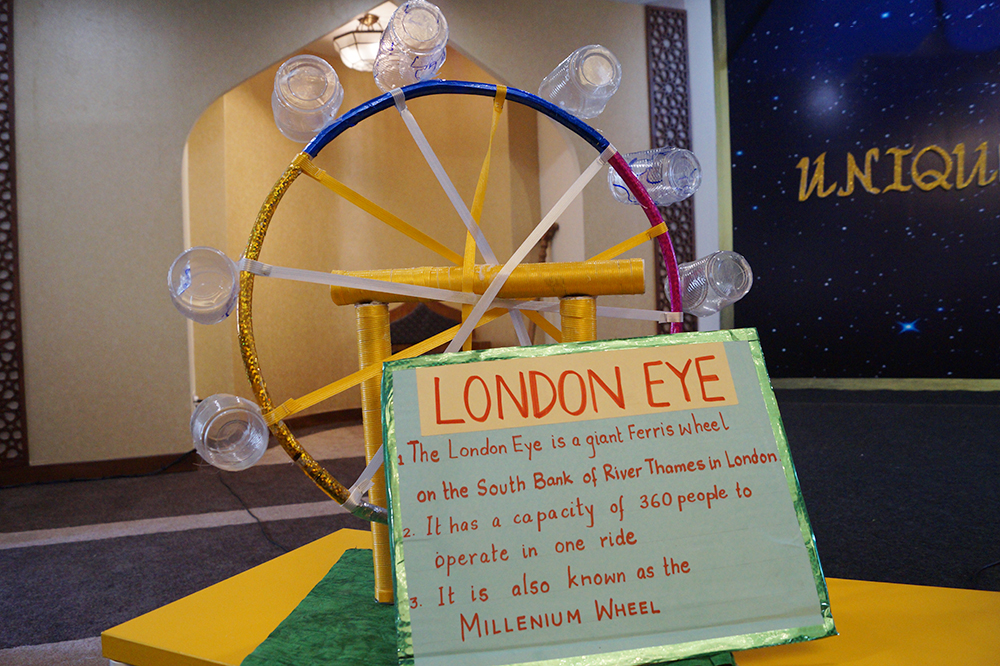 UNIQU
LONDON EYE
1. The London Eye is a giant Ferris wheel
on the South Bank of River Thames in London.
2. It has a capacity of 360 people to
operate in one ride
3. It is also known as the
MILLENIUM WHEEL